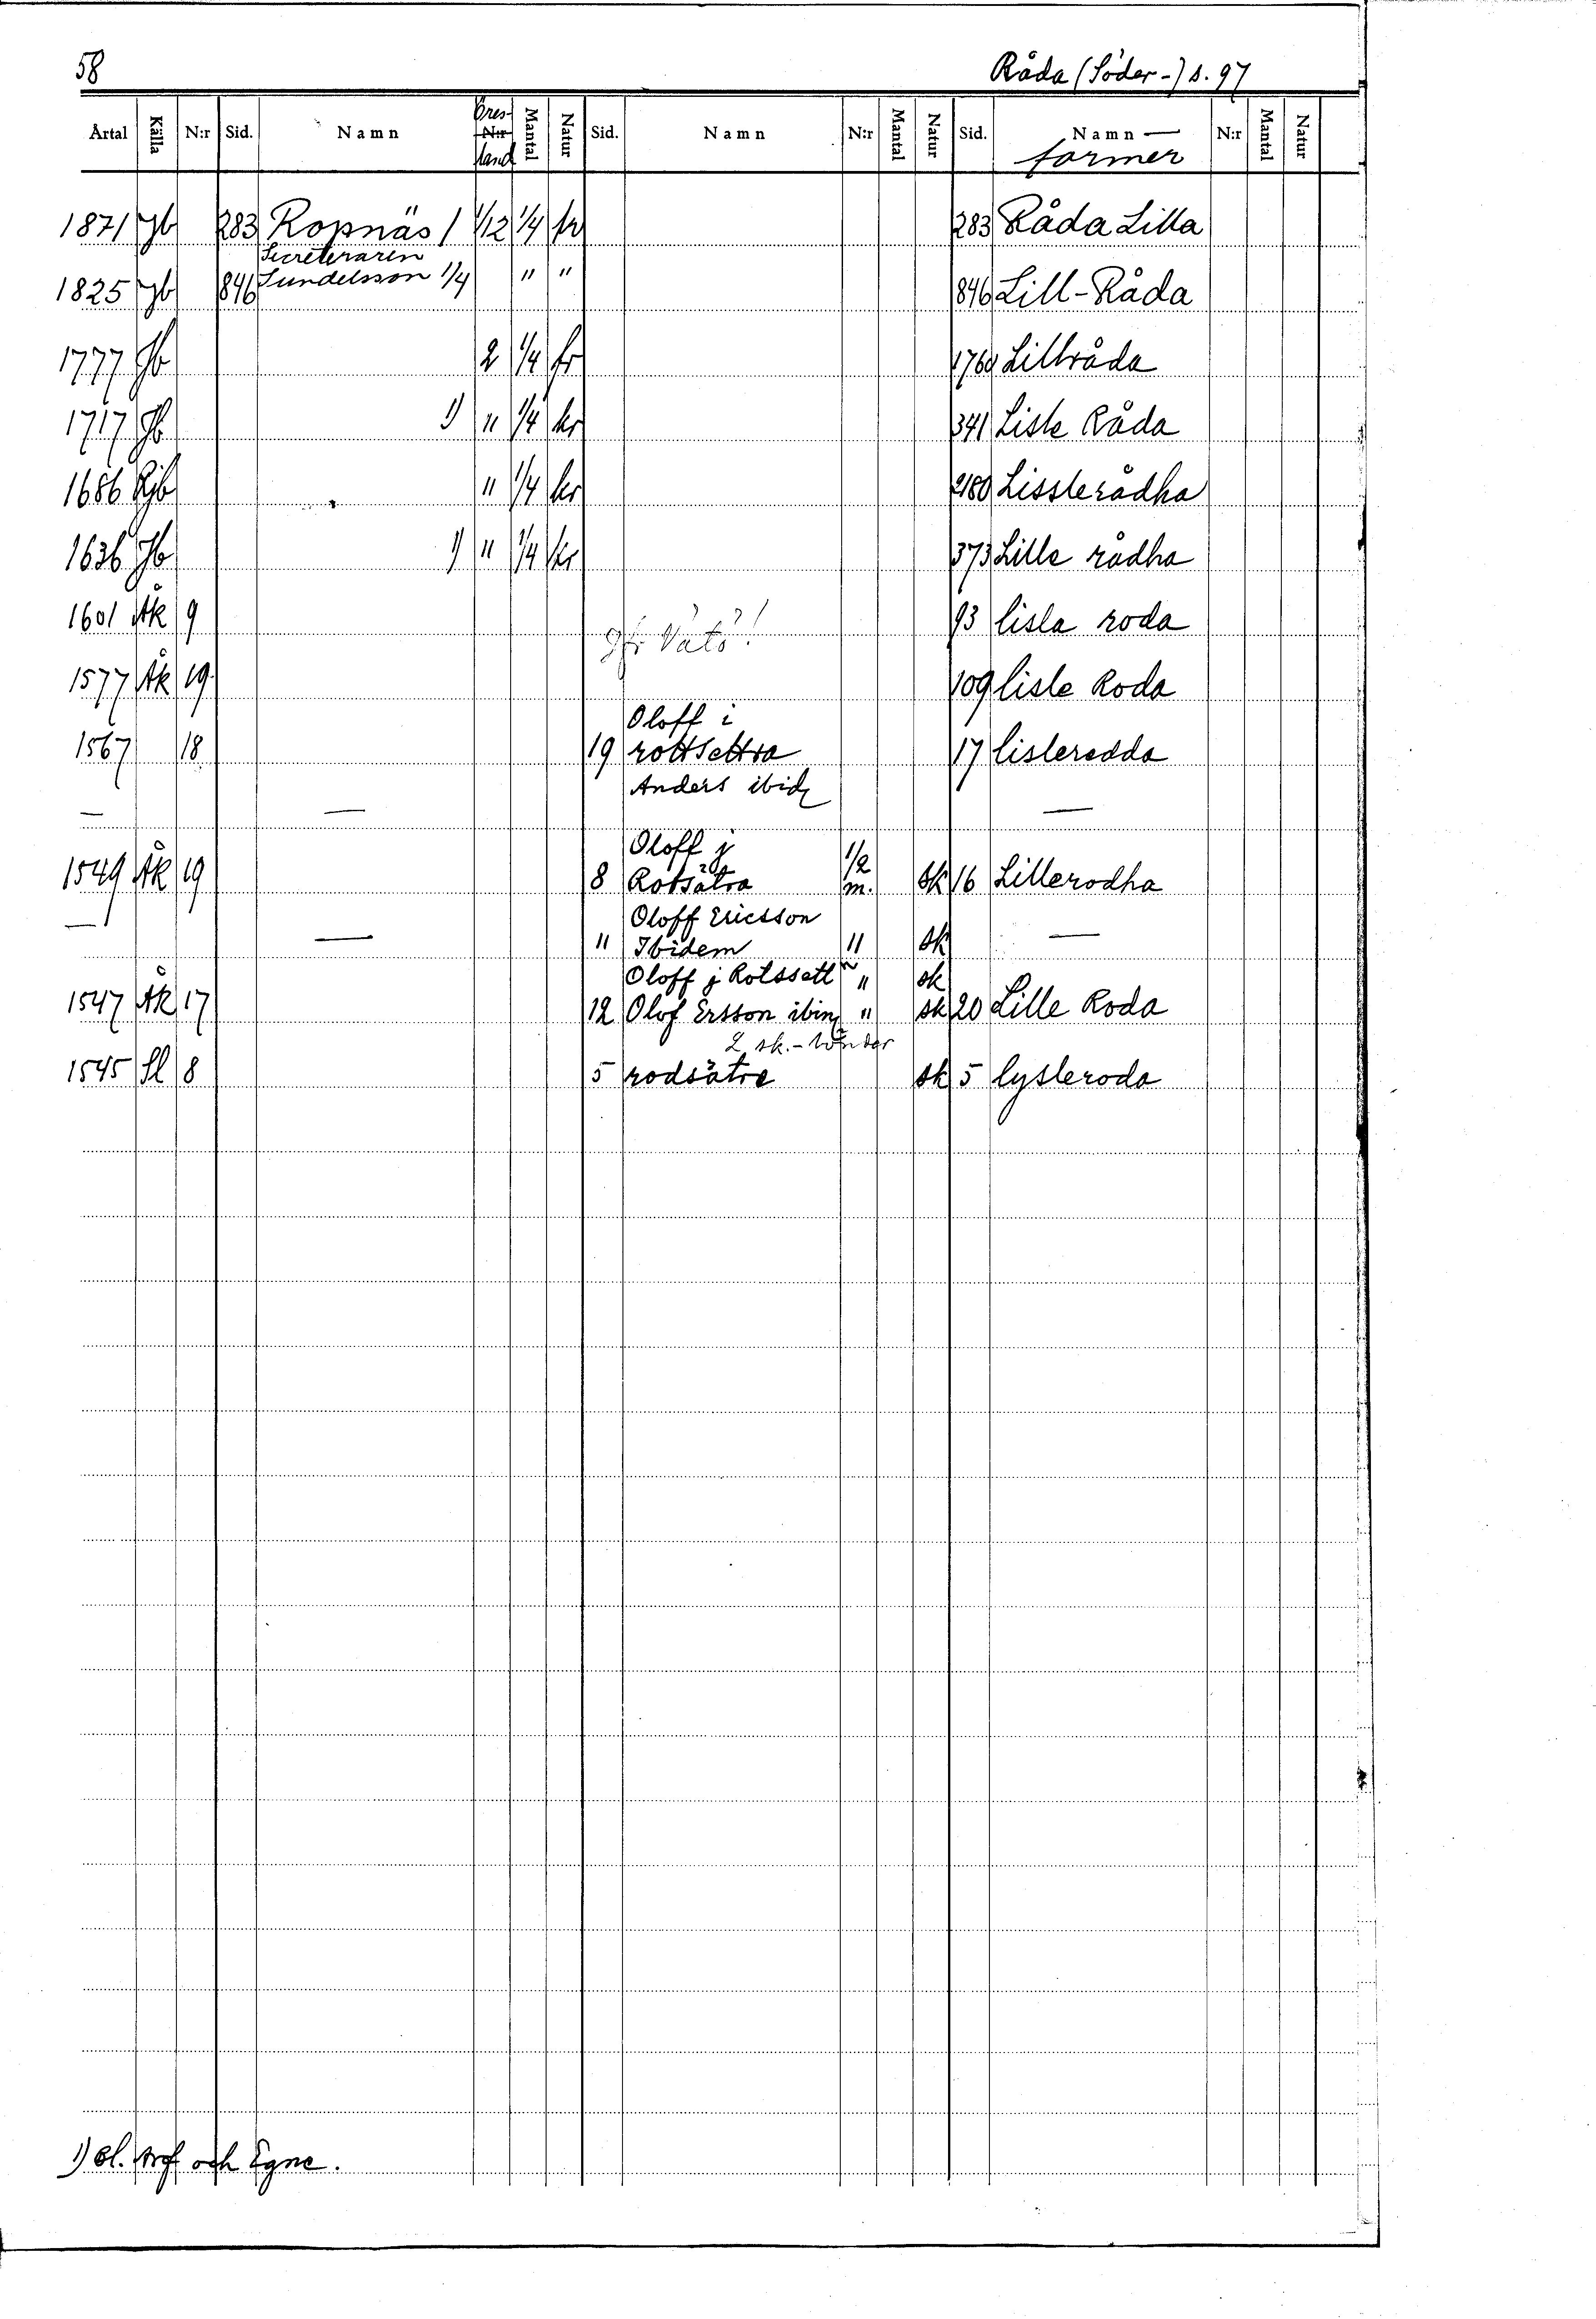 58 Råda (Söder-) s. 97
Årtal Källa N:r Sid. Namn Öres-land N:r Mantal Natur Sid. Namn N:r Mantal Natur Sid. Namn-former N:r Mantal Natur
1871 Jb 283 Ropnäs 1 1/12 1/4 fr 283 Råda Lilla
Secreteraren
1825 Jb 846 Lundelsson 1/4 " " 846 Lill-Råda
1777 Jb 2 1/4 fr 1760 Lillråda
1717 Jb 1) " 1/4 kr 341 Lisle Råda
1686 Rjb " 1/4 kr 2180 Lisslerådha
1636 Jb 1) " 1/4 kr 373 Lille rådha
1601 Åk 9 93 lisla roda
Jfr Vätö!
1577 Åk 19 109 lisle Roda
Oloff i
1567 18 19 rottsettra 17 lisleredda
Anders ibid
— — —
Oloff j 1/2
1549 Åk 19 8 Rotsätra m. sk 16 Lillerodha
Oloff Ericsson
— — " Ibidem " sk —
Oloff j Rotssett " sk
1547 Åk 17 12 Olof Ersson ibin " sk 20 Lille Roda
2 sk.-bönder
1545 Sl 8 5 rodsätre sk 5 lysleroda
1) Sl. Arf och Egne.